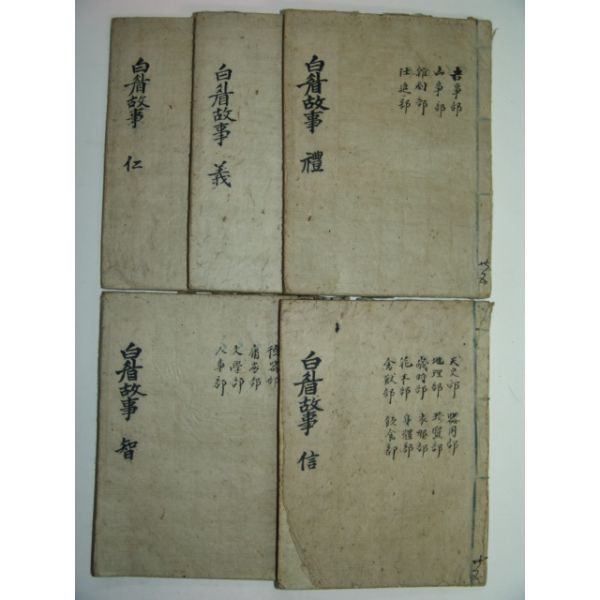 白眉故事 仁
白眉故事 義
白眉故事 禮
吉事部
凶事部
仕進部
共五
白眉故事 智
文學部
人事部
白眉故事 信
天文部 器用部
地理部 珍寶部
歲時部 衣服部
花木部 身體部
禽獸部 飲食部
共五